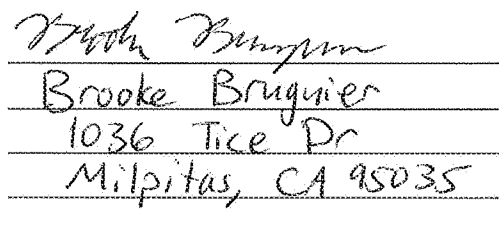 Brooke Bruguier
Brooke Bruguier
1036 Tice Dr
Milpitas, CA 95035